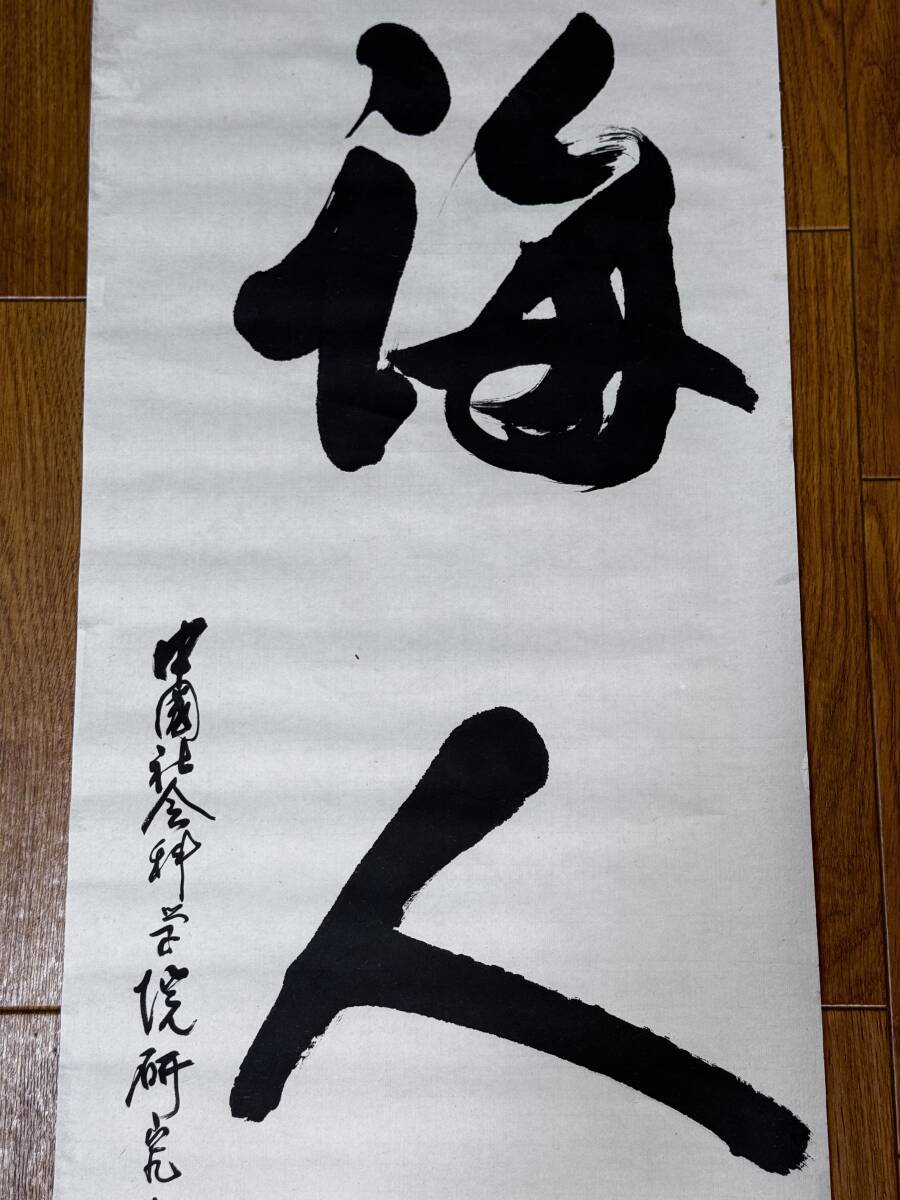 誨人
中國社会科学院研究